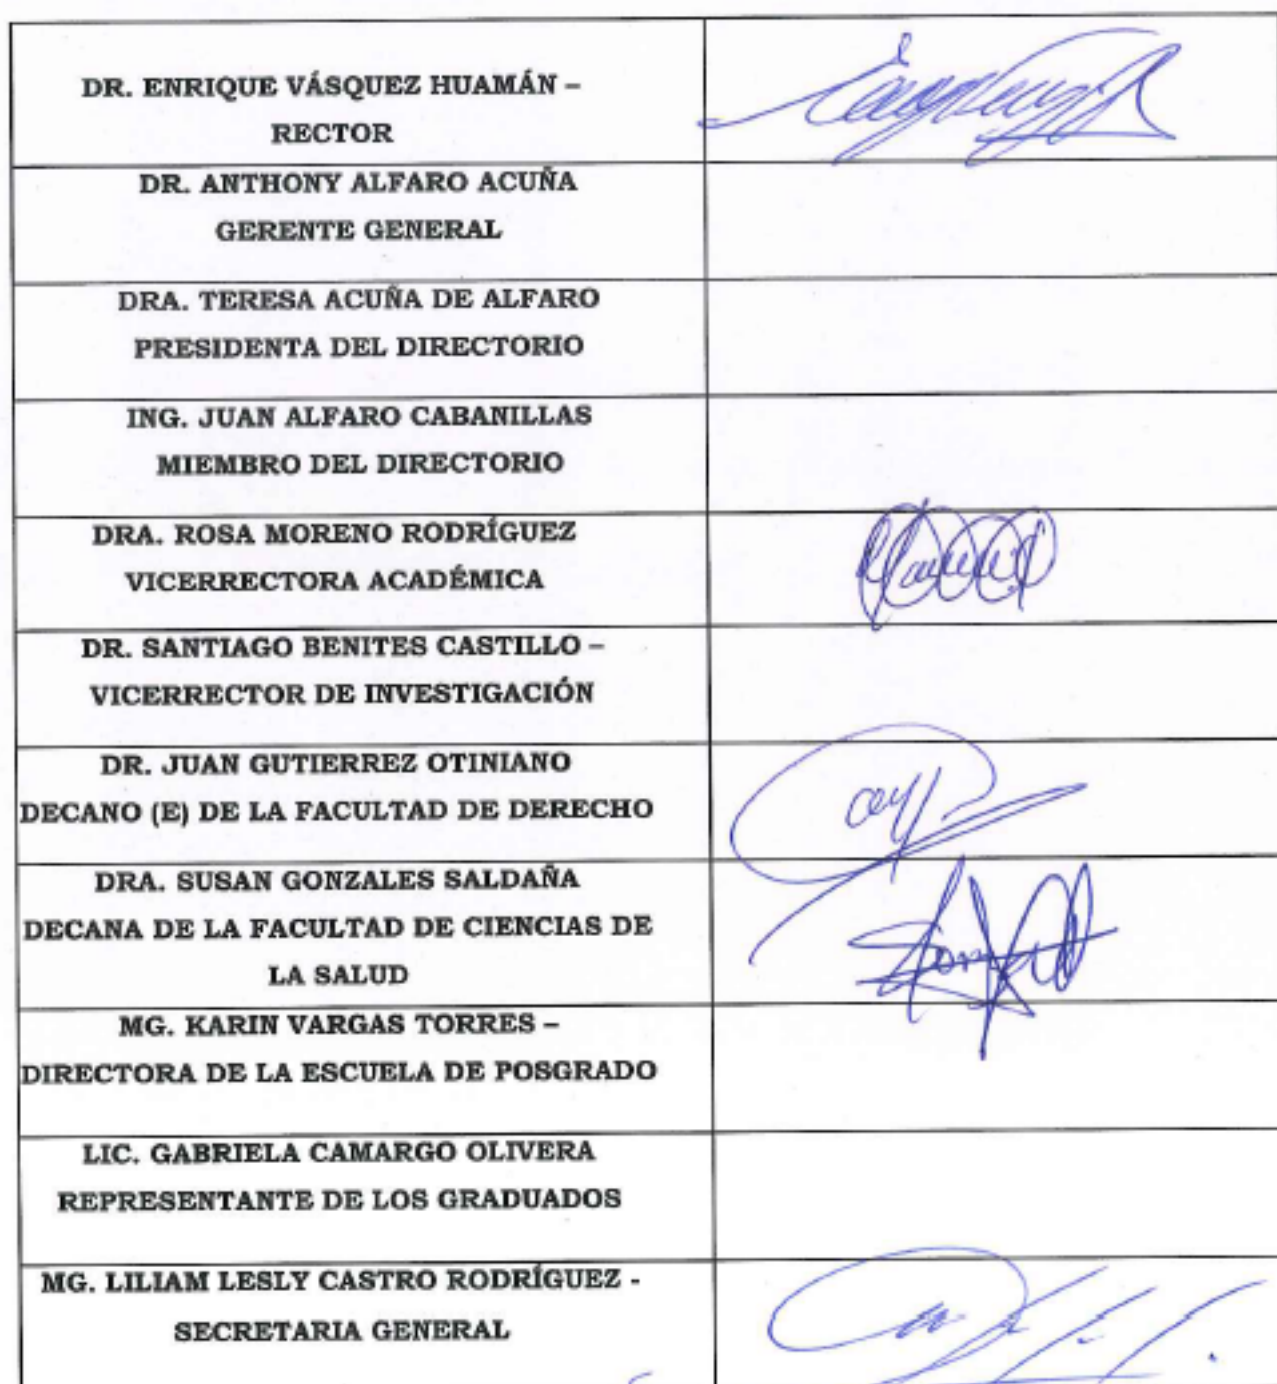 DR. ENRIQUE VÁSQUEZ HUAMÁN –
RECTOR
DR. ANTHONY ALFARO ACUÑA
GERENTE GENERAL
DRA. TERESA ACUÑA DE ALFARO
PRESIDENTA DEL DIRECTORIO
ING. JUAN ALFARO CABANILLAS
MIEMBRO DEL DIRECTORIO
DRA. ROSA MORENO RODRÍGUEZ
VICERRECTORA ACADÉMICA
DR. SANTIAGO BENITES CASTILLO –
VICERRECTOR DE INVESTIGACIÓN
DR. JUAN GUTIERREZ OTINIANO
DECANO (E) DE LA FACULTAD DE DERECHO
DRA. SUSAN GONZALES SALDAÑA
DECANA DE LA FACULTAD DE CIENCIAS DE
LA SALUD
MG. KARIN VARGAS TORRES –
DIRECTORA DE LA ESCUELA DE POSGRADO
LIC. GABRIELA CAMARGO OLIVERA
REPRESENTANTE DE LOS GRADUADOS
MG. LILIAM LESLY CASTRO RODRÍGUEZ -
SECRETARIA GENERAL